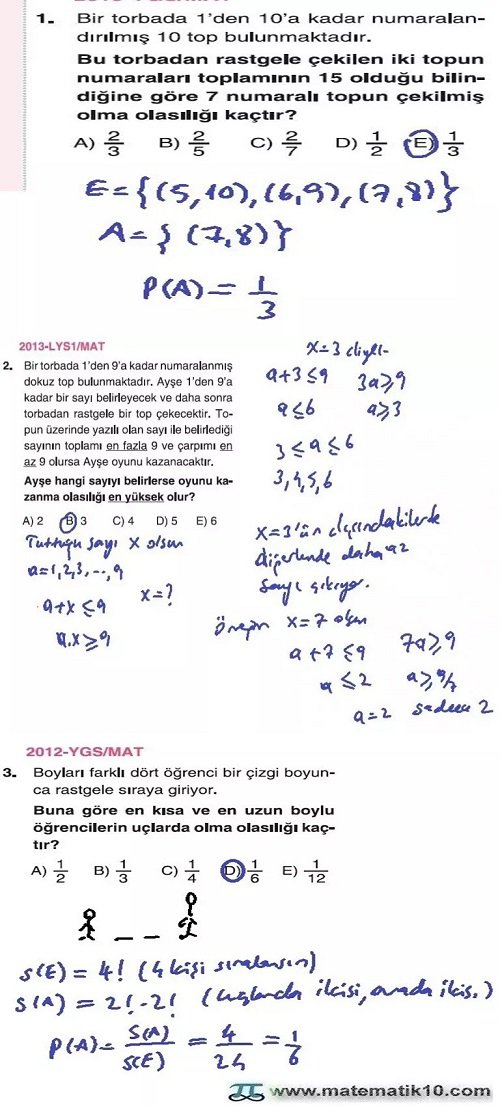 1. Bir torbada 1'den 10'a kadar numaralan-
dırılmış 10 top bulunmaktadır.
Bu torbadan rastgele çekilen iki topun
numaraları toplamının 15 olduğu bilin-
diğine göre 7 numaralı topun çekilmiş
olma olasılığı kaçtır?
A) 2/3 B) 2/5 C) 2/7 D) 1/2 E) 1/3
E = {(5,10), (6,9), (7,8)}
A = { (7,8)}
P(A) = 1/3
2013-LYS1/MAT
2. Bir torbada 1'den 9'a kadar numaralanmış
dokuz top bulunmaktadır. Ayşe 1'den 9'a
kadar bir sayı belirleyecek ve daha sonra
torbadan rastgele bir top çekecektir. To-
pun üzerinde yazılı olan sayı ile belirlediği
sayının toplamı en fazla 9 ve çarpımı en
az 9 olursa Ayşe oyunu kazanacaktır.
Ayşe hangi sayıyı belirlerse oyunu ka-
zanma olasılığı en yüksek olur?
A) 2 B) 3 C) 4 D) 5 E) 6
Tuttuğu sayı x olsun
a=1,2,3,...,9
a+x ≤ 9 x=?
a.x ≥ 9
x=3 diyelim
a+3 ≤ 9 3a ≥ 9
a ≤ 6 a ≥ 3
3 ≤ a ≤ 6
3,4,5,6
x=3'ün dışındakilerde
diğerlerinde daha az
sayı çıkıyor.
Örneğin x=7 olsun
a+7 ≤ 9 7a ≥ 9
a ≤ 2 a ≥ 9/7
a=2 sadece 2
2012-YGS/MAT
3. Boyları farklı dört öğrenci bir çizgi boyun-
ca rastgele sıraya giriyor.
Buna göre en kısa ve en uzun boylu
öğrencilerin uçlarda olma olasılığı kaç-
tır?
A) 1/2 B) 1/3 C) 1/4 D) 1/6 E) 1/12
s(E) = 4! (4 kişi sıralansın)
s(A) = 2!.2! (uçlarda ikisi, arada ikisi.)
P(A) = s(A)/s(E) = 4/24 = 1/6
www.matematik10.com